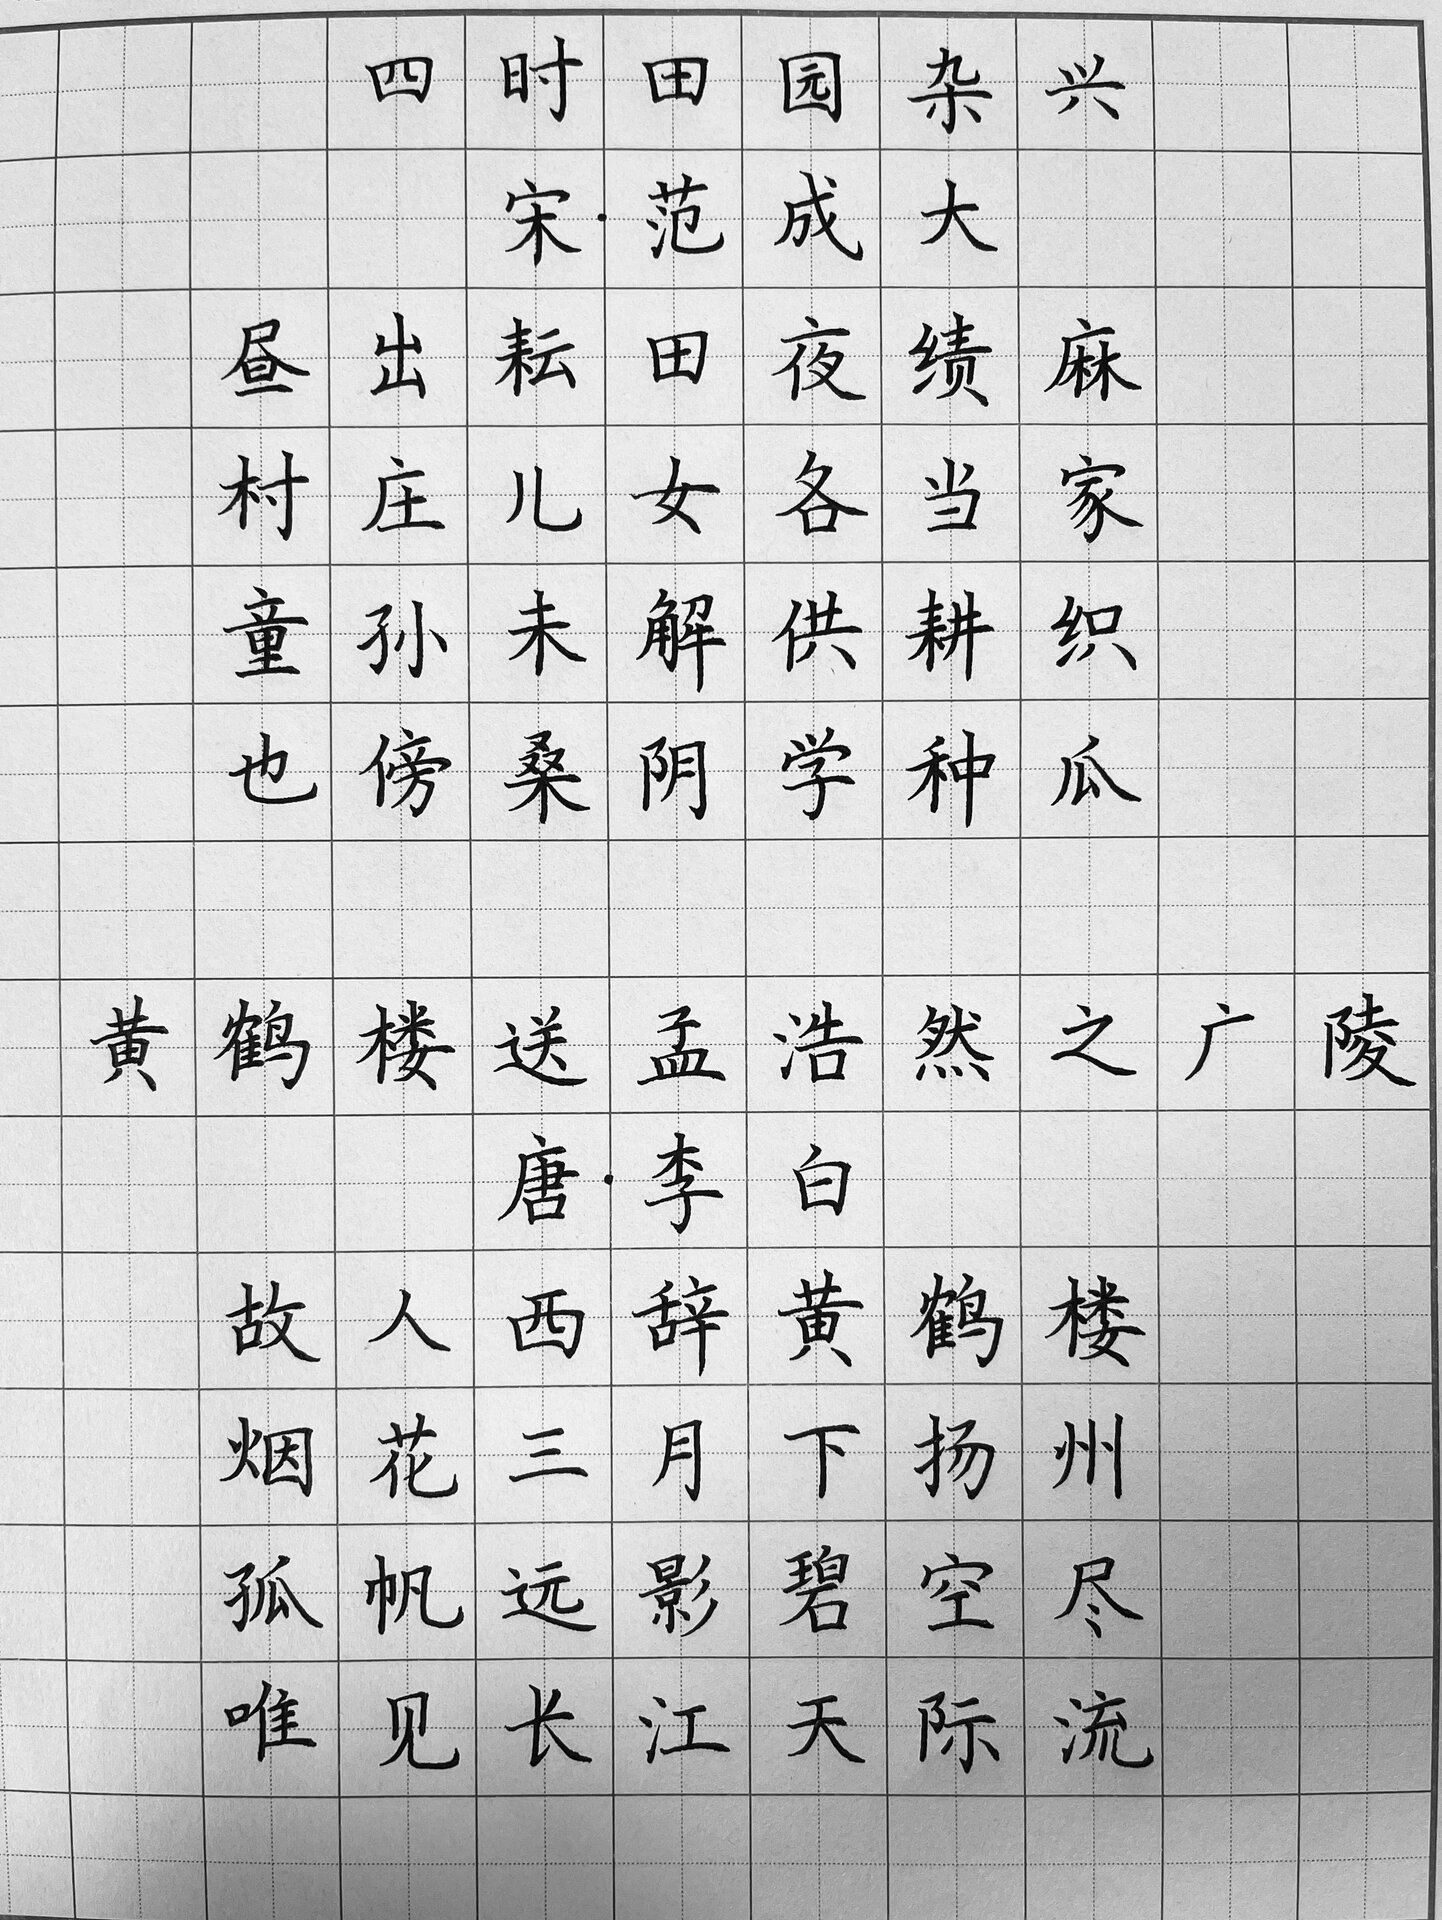 四时田园杂兴
宋·范成大
昼出耘田夜绩麻
村庄儿女各当家
童孙未解供耕织
也傍桑阴学种瓜
黄鹤楼送孟浩然之广陵
唐·李白
故人西辞黄鹤楼
烟花三月下扬州
孤帆远影碧空尽
唯见长江天际流